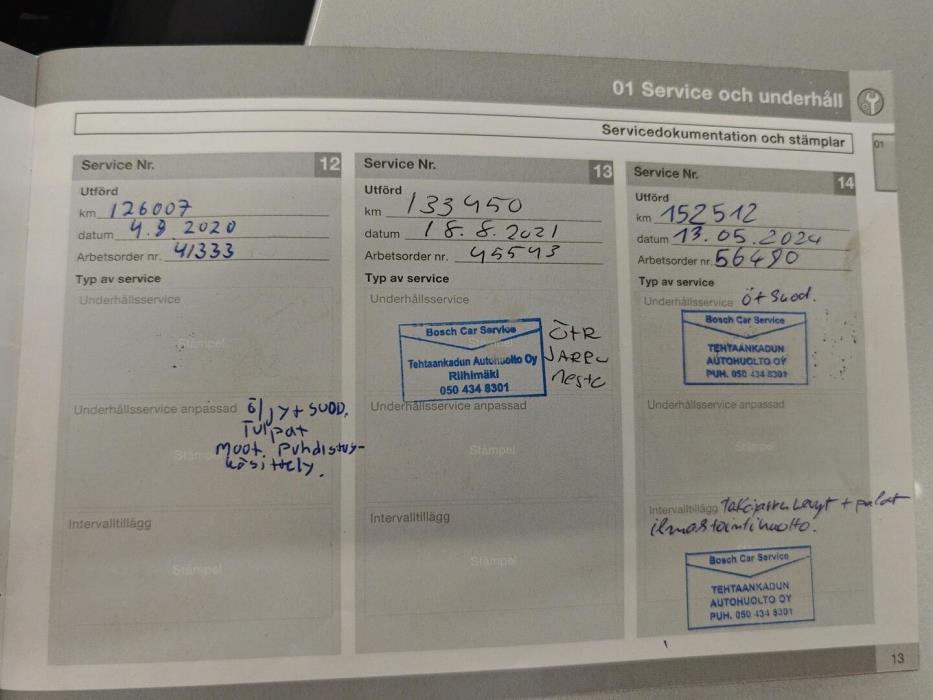 01 Service och underhåll
Servicedokumentation och stämplar
01
Service Nr. 12
Utförd
km 126007
datum 4.9 2020
Arbetsorder nr. 41333
Typ av service
Underhållsservice
Stämpel
Underhållsservice anpassad
öljyt SUOD.
Tulpat
Moot. Puhdistus-
käsittely.
Stämpel
Intervalltillägg
Stämpel
Service Nr. 13
Utförd
km 133450
datum 18.8.2021
Arbetsorder nr. 45543
Typ av service
Underhållsservice
Stämpel
Bosch Car Service
Tehtaankadun Autohuolto Oy
Riihimäki
050 434 8301
Ö+R
JARRU
neste
Underhållsservice anpassad
Stämpel
Intervalltillägg
Stämpel
Service Nr. 14
Utförd
km 152512
datum 13.05.2024
Arbetsorder nr. 56490
Typ av service
Underhållsservice Ö+Suod.
Bosch Car Service
TEHTAANKADUN
AUTOHUOLTO OY
PUH. 050 434 8301
Underhållsservice anpassad
Stämpel
Intervalltillägg Takajarru Levyt + palat
ilmastointihuolto.
Bosch Car Service
TEHTAANKADUN
AUTOHUOLTO OY
PUH. 050 434 8301
13